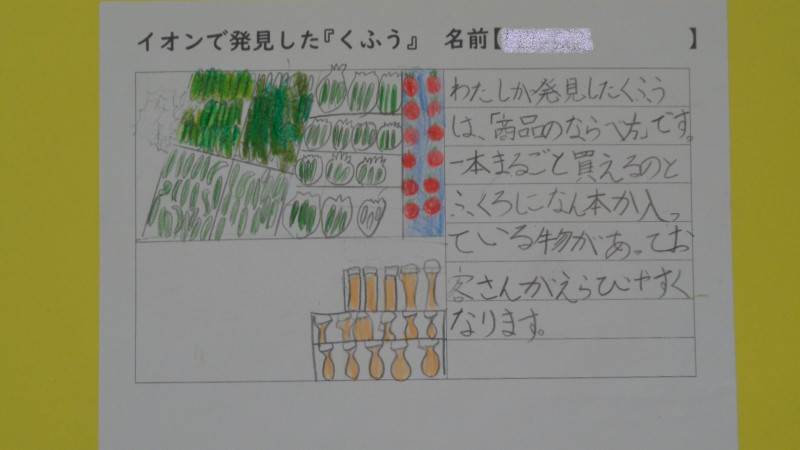 イオンで発見した『くふう』 名前【 】
わたしが発見したくふう
は、「商品のならべ方」です。
一本まるごと買えるのと
ふくろになん本か入っ
ている物があってお
客さんがえらびやすく
なります。